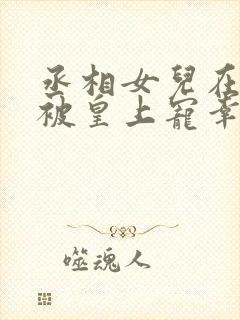 丞相女兒在
被皇上寵幸
噬魂人